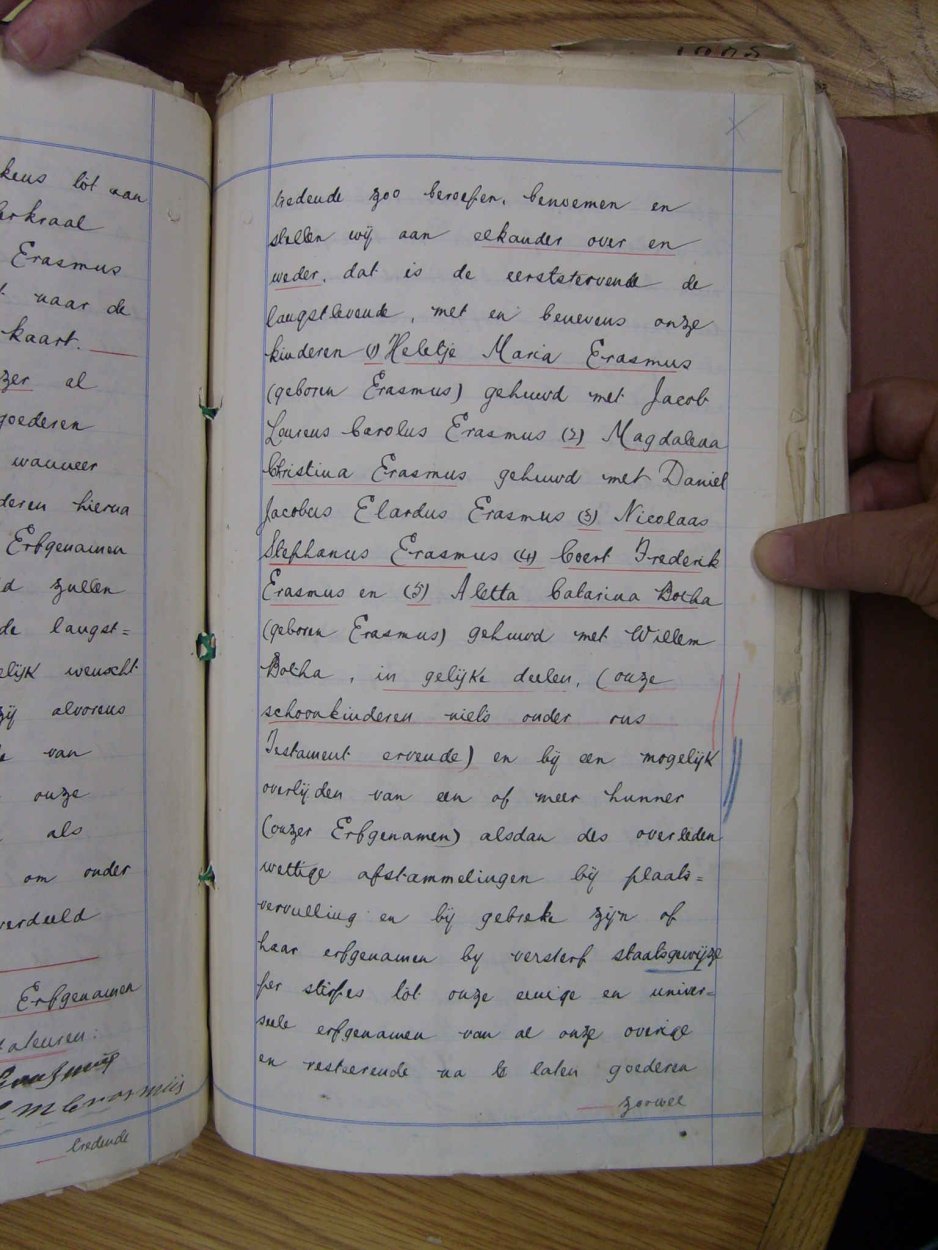 kens tot aan
erkraal
Erasmus
t naar de
kaart.
zer al
goederen
wanneer
deren hierna
Erfgenamen
d zullen
de langst=
elijk wenscht
zij alvorens
van
onze
als
om onder
verdeeld
Erfgenamen
tredende
tredende zoo beroepen, benoemen en
stellen wij aan elkander over en
weder, dat is de eerststervende de
langstlevende, met en benevens onze
kinderen (1) Heletje Maria Erasmus
(geboren Erasmus) gehuwd met Jacob
Lourens Carolus Erasmus (2) Magdalena
Christina Erasmus gehuwd met Daniel
Jacobus Elardus Erasmus (3) Nicolaas
Stephanus Erasmus (4) Coert Frederik
Erasmus en (5) Aletta Catarina Botha
(geboren Erasmus) gehuwd met Willem
Botha, in gelijke deelen, (onze
schoonkinderen niets onder ons
Testament ervende) en bij een mogelijk
overlijden van een of meer hunner
(onzer Erfgenamen) alsdan des overleden
wettige afstammelingen bij plaats=
vervulling en bij gebreke zijn of
haar erfgenamen by versterf staatsgewijze
per stirpes tot onze eenige en univer=
seele erfgenamen van al onze overige
en resteerende na te laten goederen
zoowel